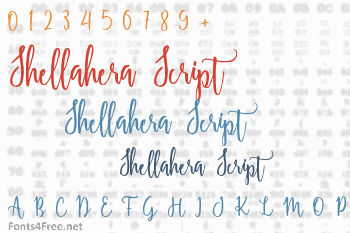 0 1 2 3 4 5 6 7 8 9 +
Shellahera Script
Shellahera Script
Shellahera Script
A B C D E F G H I J K L M O P
Fonts4Free.net